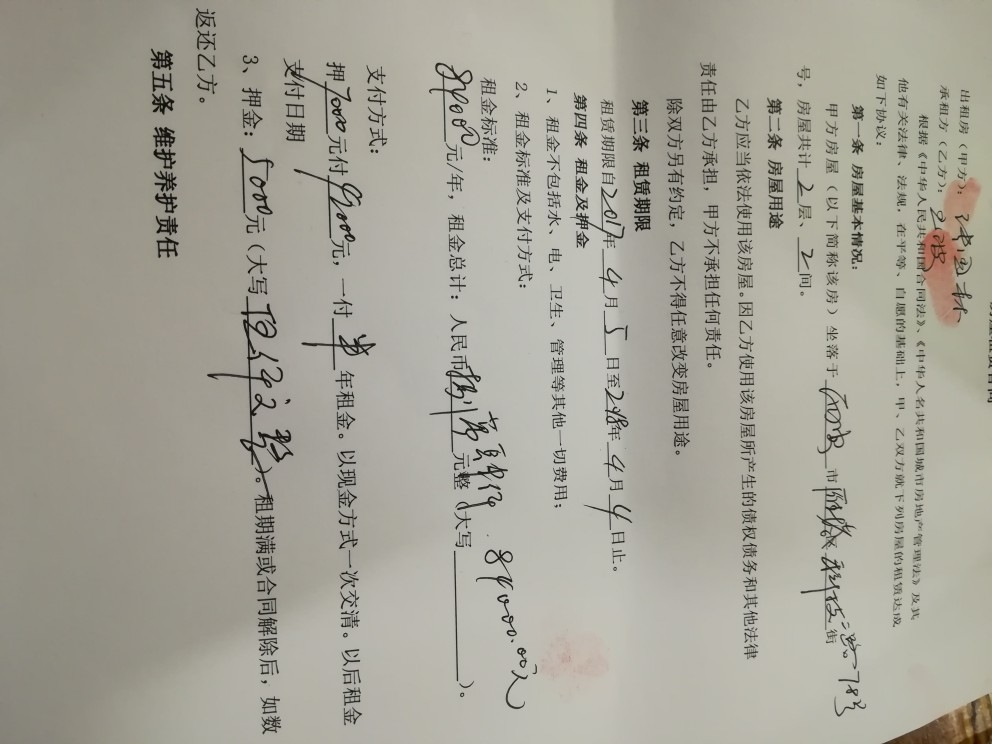 出租房（甲方）：
承租方（乙方）：
根据《中华人民共和国合同法》、《中华人名共和国城市房地产管理法》及其
他有关法律、法规，在平等、自愿的基础上，甲、乙双方就下列房屋的租赁达成
如下协议：
第一条 房屋基本情况：
甲方房屋（以下简称该房）坐落于 西安 市 街
号，房屋共计2层、2间。
第二条 房屋用途
乙方应当依法使用该房屋。因乙方使用该房屋所产生的债权债务和其他法律
责任由乙方承担，甲方不承担任何责任。
除双方另有约定，乙方不得任意改变房屋用途。
第三条 租赁期限
租赁期限自2017年4月5日至2018年4月4日止。
第四条 租金及押金
1、租金不包括水、电、卫生、管理等其他一切费用；
2、租金标准及支付方式：
租金标准：
84000元/年，租金总计：人民币 元整（大写 ）。
84000.00元）
支付方式：
押 元付 元，一付 年租金。以现金方式一次交清。以后租金
支付日期
3、押金：5000元（大写 ）。租期满或合同解除后，如数
返还乙方。
第五条 维护养护责任